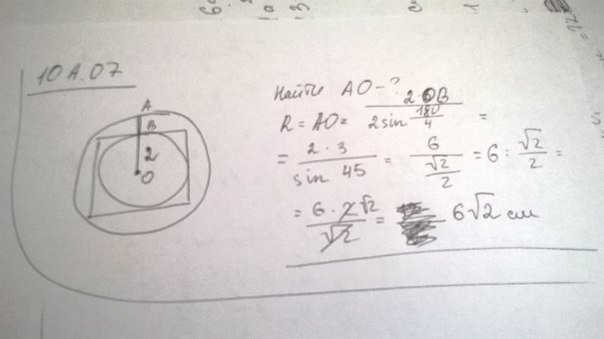 10 А.07
A
B
2
O
Найти AO - ?
R = AO = 2·OB / 2 sin 180/4 =
= 2·3 / sin 45 = 6 / √2/2 = 6 : √2/2 =
= 6·2√2 / √2 = 6√2 см